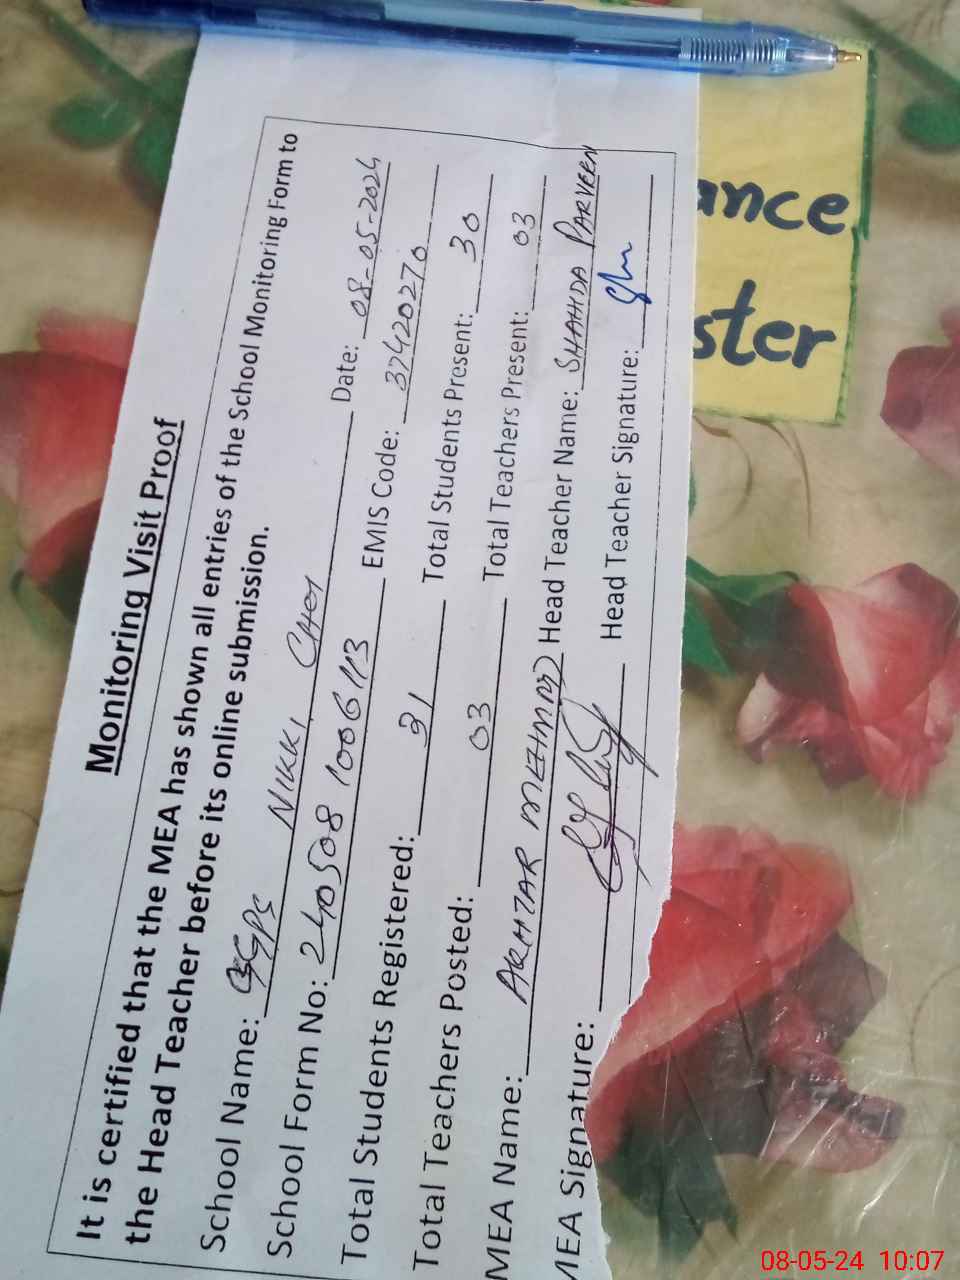 Monitoring Visit Proof
It is certified that the MEA has shown all entries of the School Monitoring Form to
the Head Teacher before its online submission.
School Name: GGPS NIKKI CHOI Date: 08-05-2024
School Form No: 240508 1006113 EMIS Code: 37420270
Total Students Registered: 31 Total Students Present: 30
Total Teachers Posted: 03 Total Teachers Present: 03
MEA Name: AKHTAR MEHMOOD Head Teacher Name: SHAHIDA PARVEEN
MEA Signature: Head Teacher Signature:
ance
ster
08-05-24 10:07